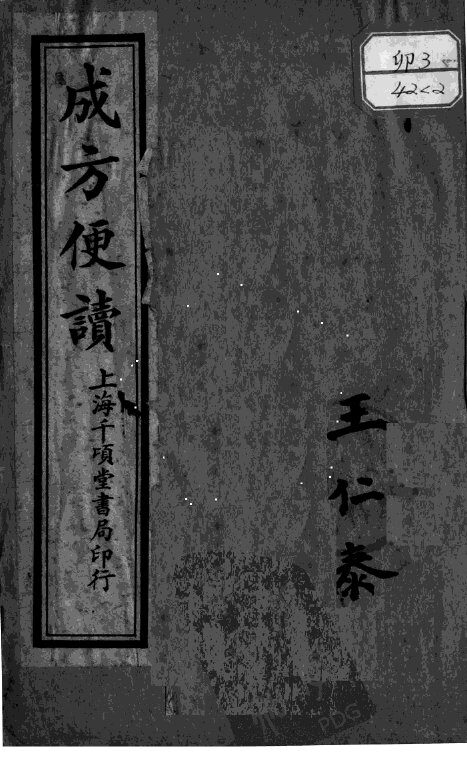 卯3
42<2
王仁泰
成方便讀
上海千頃堂書局印行
PDG